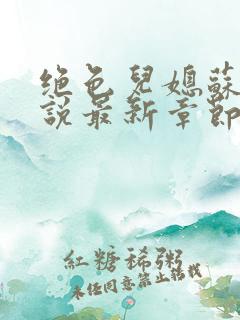 绝色兒媳蘇
說最新章節
紅糖稀粥
未经同意禁止转载